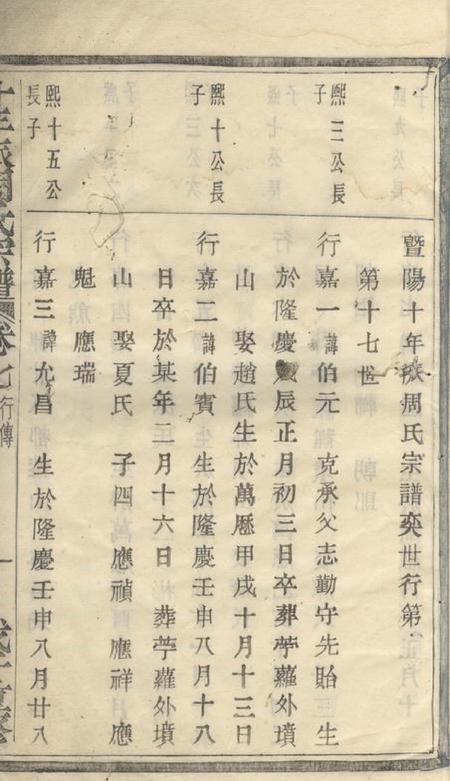 暨陽十年派周氏宗譜奕世行第
第十七世
熙三公長子
行嘉一諱伯元 克承父志勤守先貽 生
於隆慶 辰正月初三日卒葬苧蘿外墳
山 娶趙氏生於萬曆甲戌十月十三日
熙十公長子
行嘉二諱伯賓 生於隆慶壬申八月十八
日卒於某年二月十六日 葬苧蘿外墳
山 娶夏氏 子四應禎 應祥 應
魁 應瑞
熙十五公長子
行嘉三諱允昌 生於隆慶壬申八月廿八
氏宗譜 卷七 行傳 一